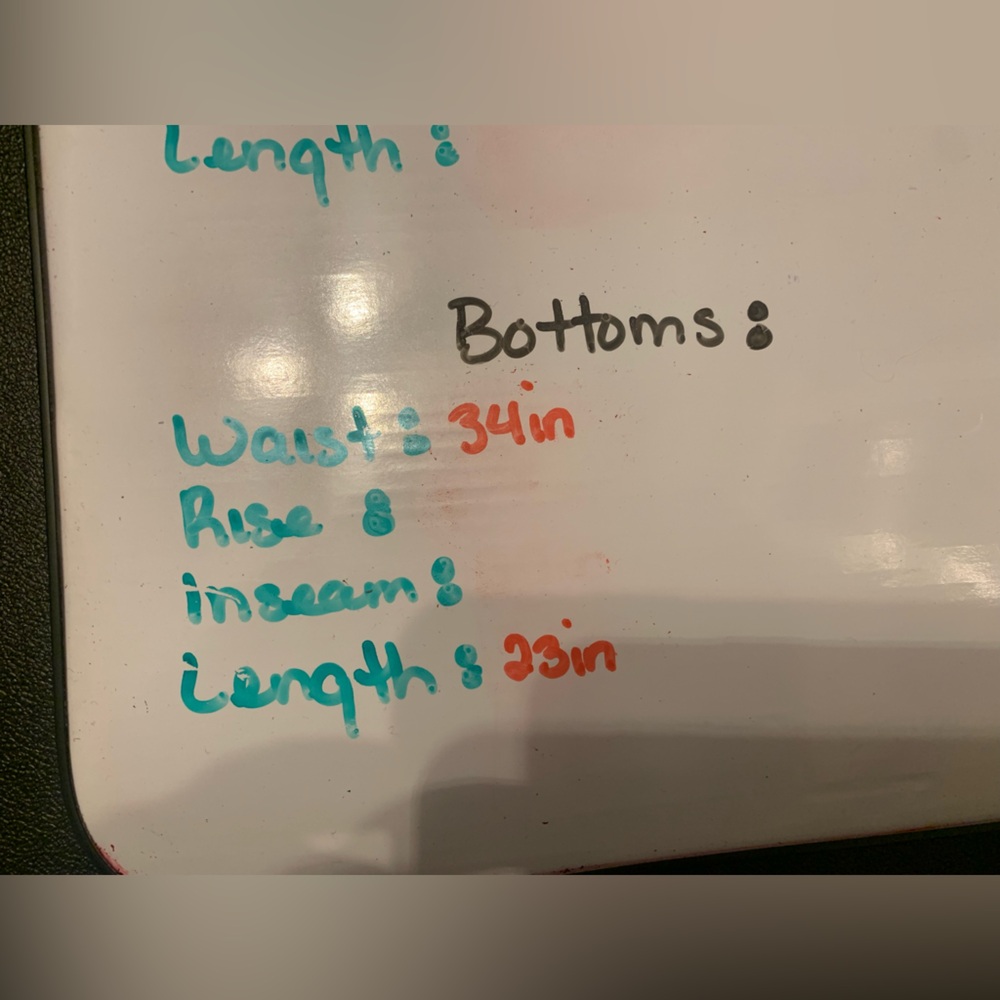 Length :
Bottoms :
Waist : 34in
Rise :
inseam :
Length : 23in